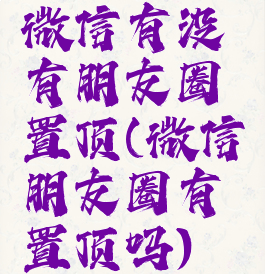 微信有没
有朋友圈
置顶(微信
朋友圈有
置顶吗)